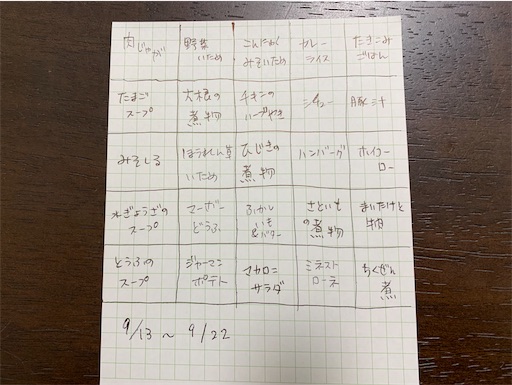 肉じゃが
野菜
いため
こんにゃく
みそいため
カレー
ライス
たきこみ
ごはん
たまご
スープ
大根の
煮物
チキンの
ハーブやき
シチュー
豚汁
みそしる
ほうれん草
いため
ひじきの
煮物
ハンバーグ
ホイコー
ロー
水ぎょうざの
スープ
マーボー
どうふ
ふかし
いも
バター
さといも
の煮物
まいたけと
牛肉
とうふの
スープ
ジャーマン
ポテト
マカロニ
サラダ
ミネスト
ローネ
ちくぜん
煮
9/13～9/22